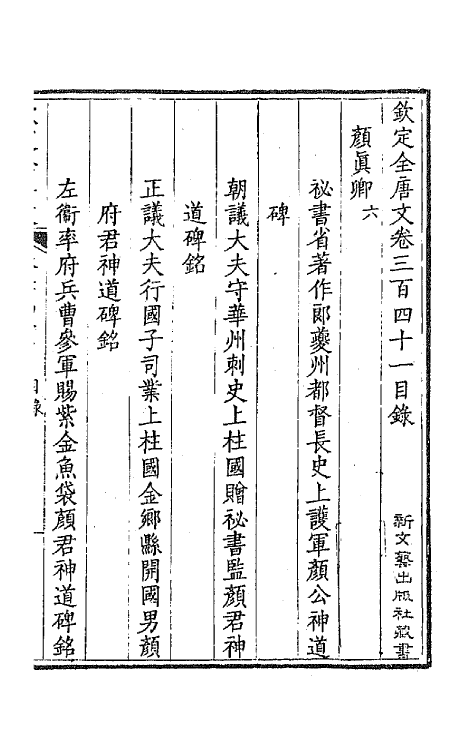 欽定全唐文卷三百四十一目錄
新文藝出版社藏書
顏眞卿 六
祕書省著作郞夔州都督長史上護軍顏公神道
碑
朝議大夫守華州刺史上柱國贈祕書監顏君神
道碑銘
正議大夫行國子司業上柱國金鄉縣開國男顏
府君神道碑銘
左衞率府兵曹參軍賜紫金魚袋顏君神道碑銘